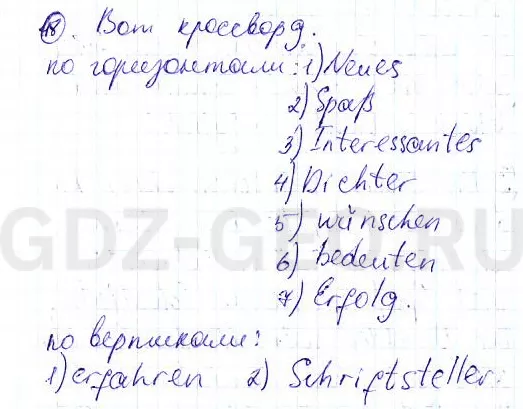 18. Вот кроссворд.
по горизонтали: 1) Neues
2) Spaß
3) Interessantes
4) Dichter
5) wünschen
6) bedeuten
7) Erfolg.
по вертикали:
1) erfahren 2) Schriftsteller.
GDZ-GDZ.RU